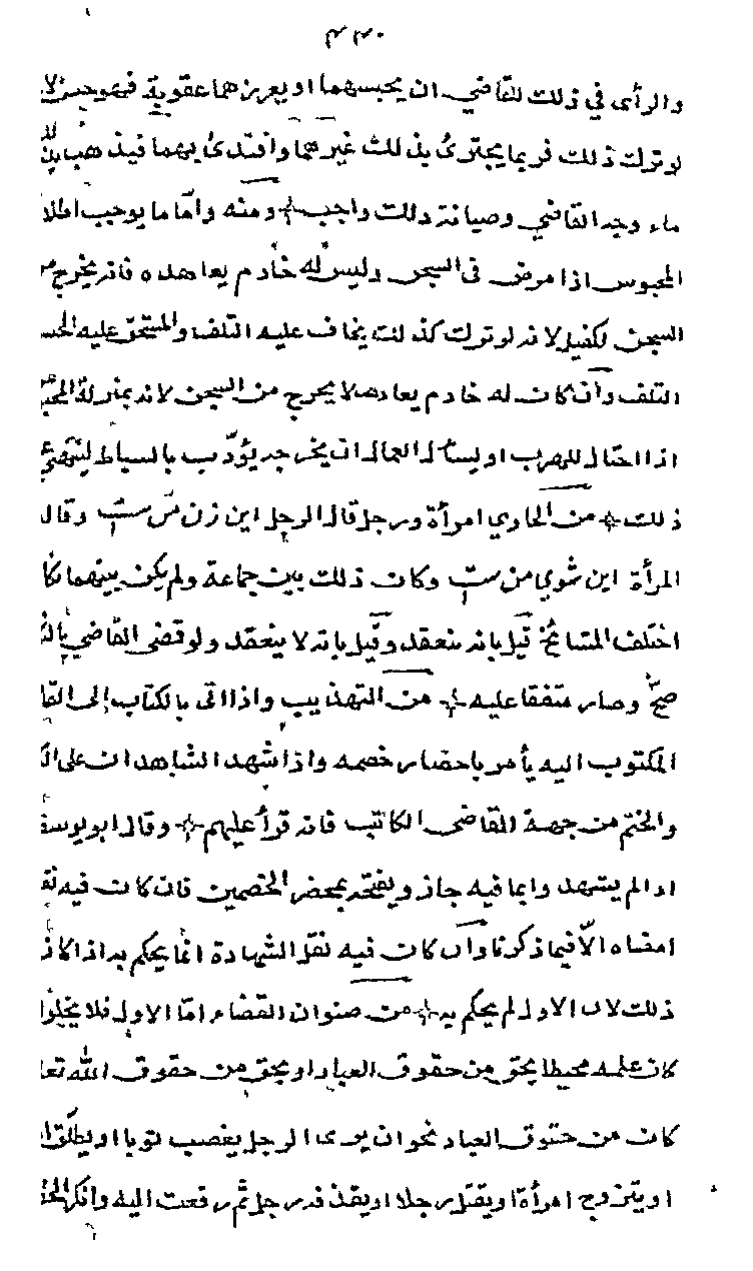 والرأى في ذلك للقاضي ان يحبسهما او يعزرهما عقوبة فهو حسن لا
لو ترك ذلك فربما يجترئ بذلك غيرهما واقتدى بهما فيذهب
ماء وجه القاضي وصيانة ذلك واجب ومنه واما ما يوجب اطلا
المحبوس اذا مرض فى السجن وليس له خادم يعاهده فانه يخرج من
السجن لكفيل لانه لو ترك كذلك يخاف عليه التلف والمستحق عليه الحبس
التلف وان كان له خادم يعاهده لا يخرج من السجن لانه بمنزلة
اذا احتال للهرب او يسأل العمال ان يخرجه يؤدب بالسياط لينتهي
ذلك من الحاوي امرأة ورجل قال الرجل اين زن من ست وقال
المرأة اين شوي من ست وكان ذلك بين جماعة ولم يكن بينهما نكا
اختلف المشائخ قيل بانه ينعقد وقيل بانه لا ينعقد ولو قضى القاضي
صح وصار متفقا عليه من التهذيب واذا اتى بالكتاب الى القا
المكتوب اليه يأمر باحضار خصمه واذا شهد الشاهدان على
والختم من جهة القاضى الكاتب فانه قرأ عليهم وقال ابو يوسف
اذا لم يشهد وابما فيه جاز ويفتحه بمحضر الخصمين فان كان فيه
امضاه الا فيما ذكرنا وان كان فيه نقل الشهادة انما يحكم به اذا
ذلك لان الاول لم يحكم به من صنوان القضاء اما الاول فلا يخلوا
كان علمه محيطا بحق من حقوق العباد او بحق من حقوق الله تعا
كان من حقوق العباد نحو ان يرى الرجل يغصب ثوبا او يطلق
او يتزوج امرأة او يقتل رجلا او يقذف رجل ثم رفعت اليه وانكر